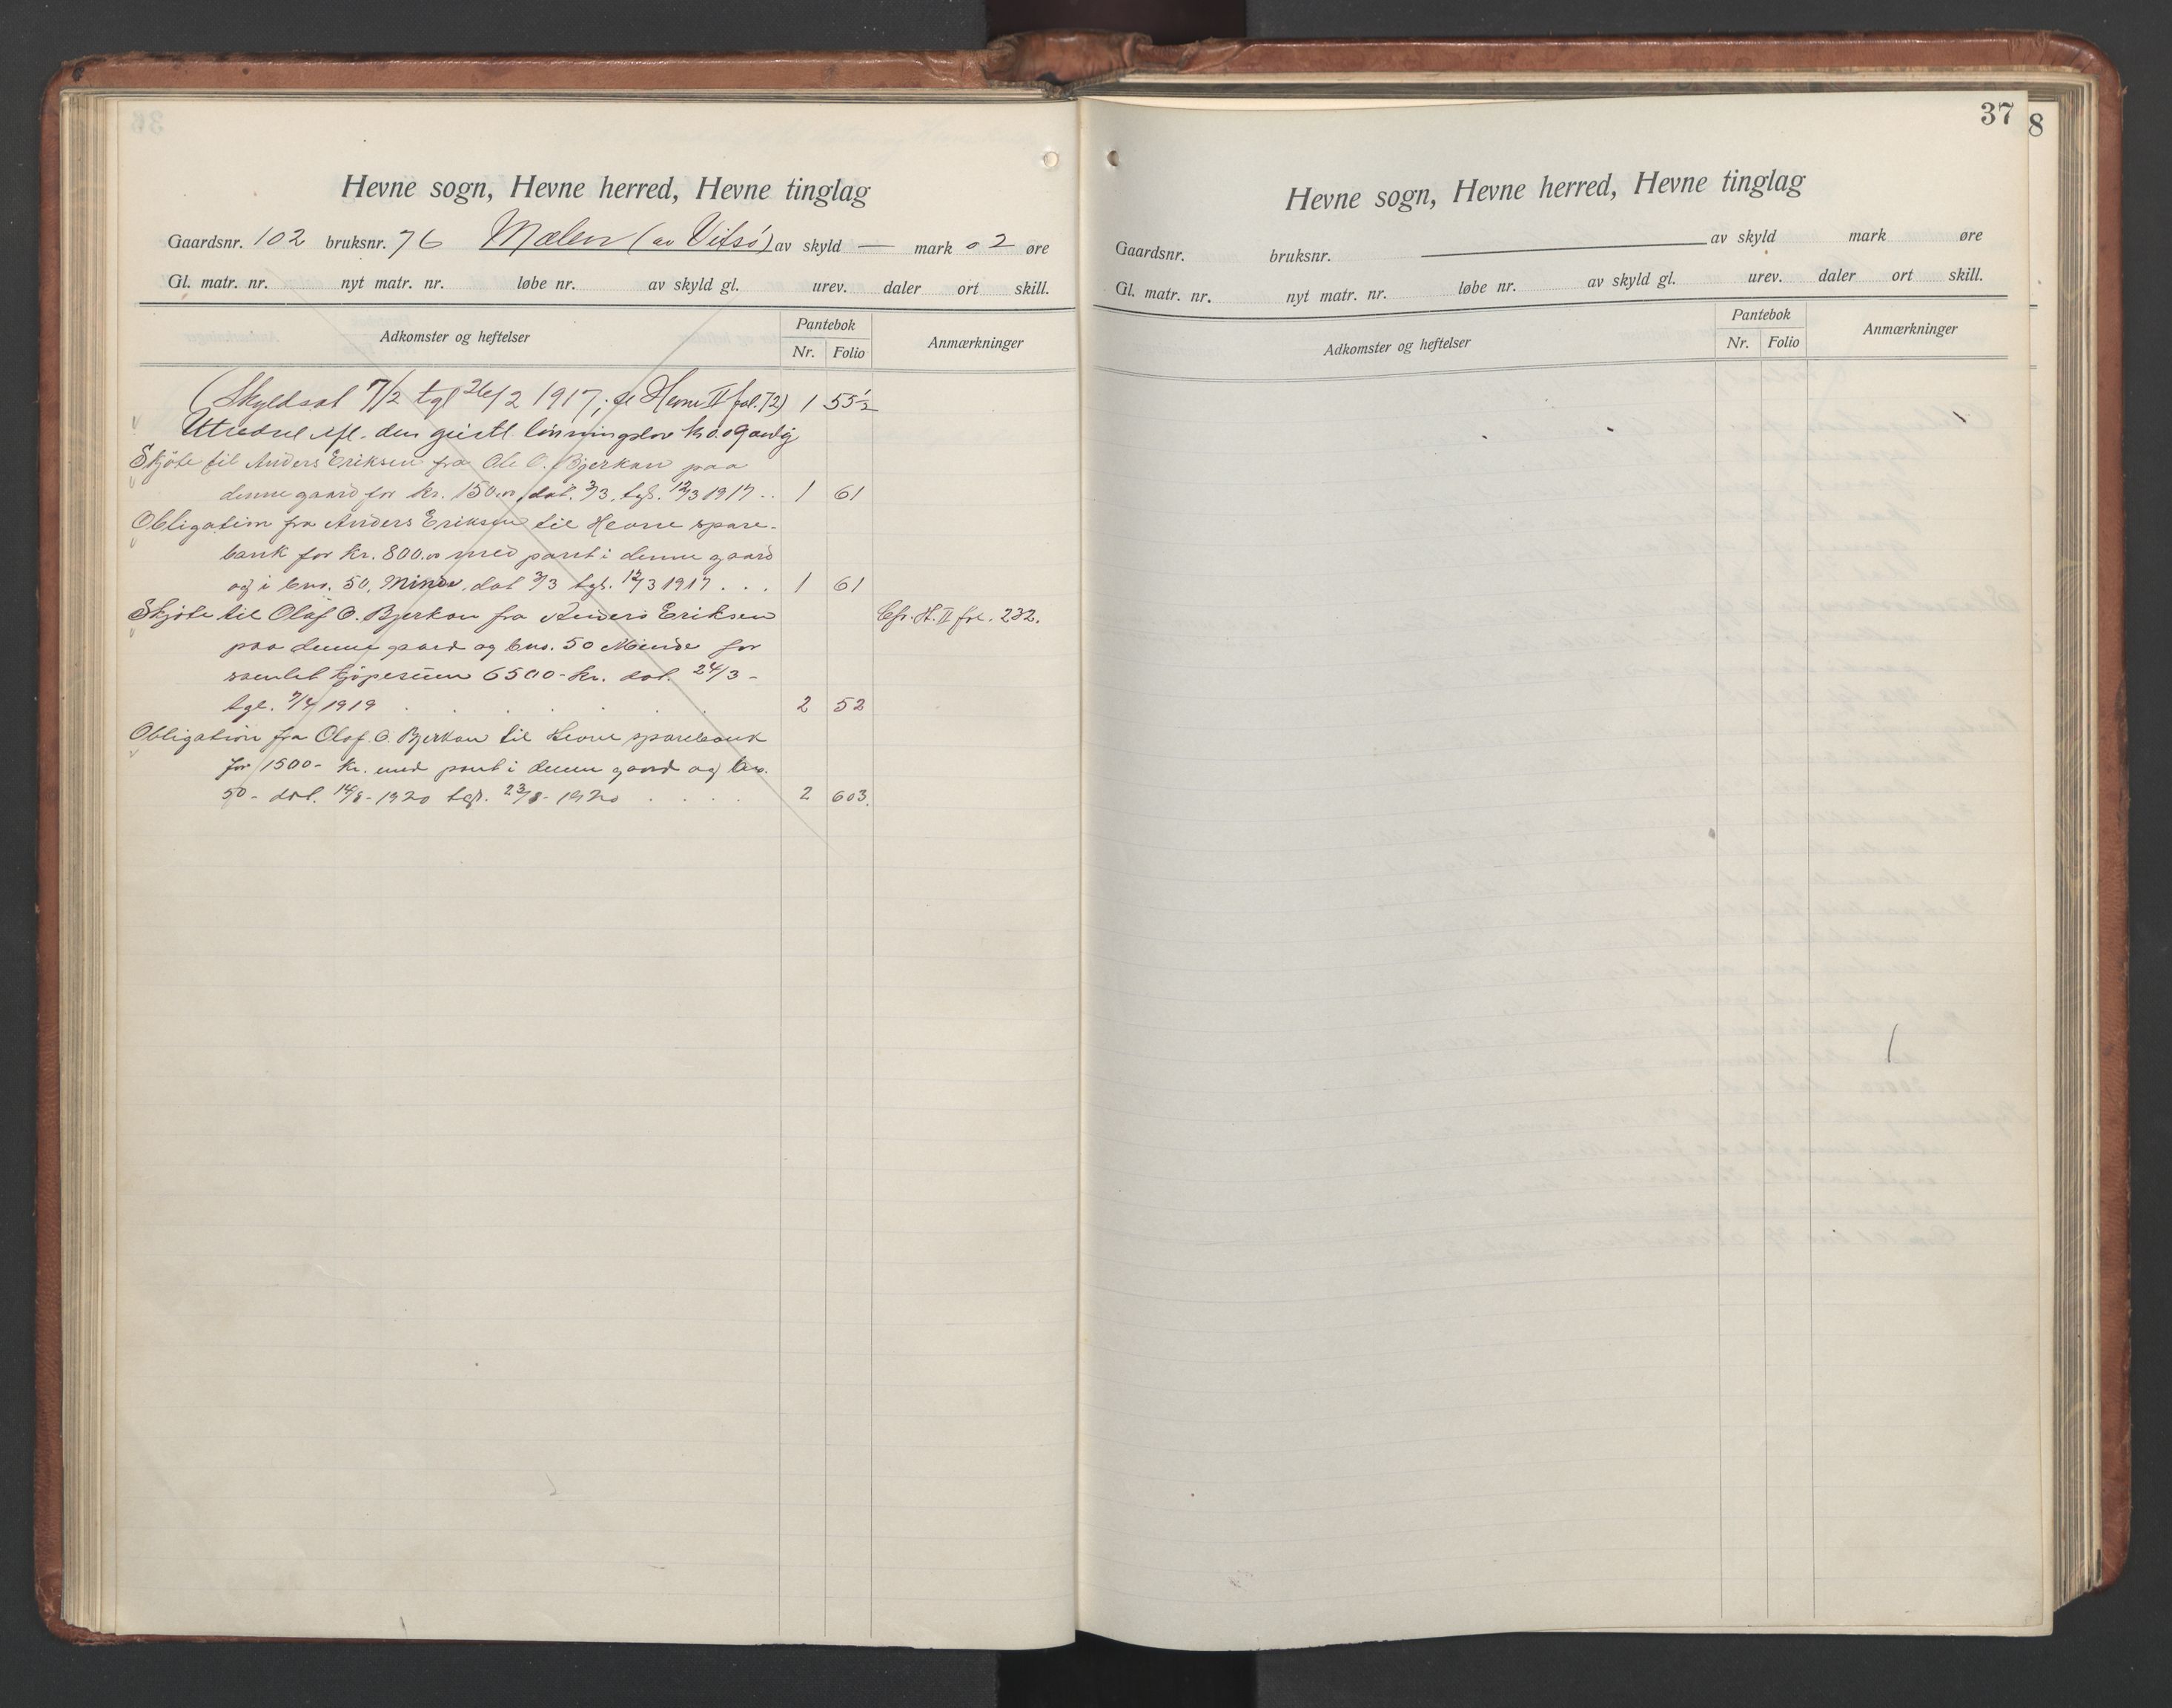 Hevne sogn, Hevne herred, Hevne tinglag
Gaardsnr. 102 bruksnr. 76 Mælen (av Vitsö) av skyld — mark 02 øre
Gl. matr. nr. nyt matr. nr. løbe nr. av skyld gl. urev. daler ort skill.
Adkomster og heftelser Pantebok Nr. Folio Anmærkninger
(Skyldsat 7/2 tgl 26/2 1917; se Hevne II fol. 72) 1 55½
Utredsel efl. den geistl. lönningslov kr 0.09 aarlig
Skjöte til Anders Eriksen fra Ole O. Bjerkan paa
denne gaard for kr. 150.00, dat. 3/3, tgl. 12/3 1917 .. 1 61
Obligation fra Anders Eriksen til Hevne spare-
bank for kr. 800.00 med pant i denne gaard
og i bno. 50, Minde, dat 3/3 tgl. 12/3 1917 . . . 1 61
Skjöte til Olaf O. Bjerkan fra Anders Eriksen Cfr. H. II fol. 232.
paa denne gaard og bno. 50 Minde for
samlet kjöpesum 6500- kr. dat. 24/3 -
tgl. 7/4 1919 . . . . . . 2 52
Obligation fra Olaf O. Bjerkan til Hevne sparebank
for 1500- kr. med pant i denne gaard og bno.
50- dat. 14/8- 1920 tgl. 23/8- 1920 . . . . 2 603.
37
8
Hevne sogn, Hevne herred, Hevne tinglag
Gaardsnr. bruksnr. av skyld mark øre
Gl. matr. nr. nyt matr. nr. løbe nr. av skyld gl. urev. daler ort skill.
Adkomster og heftelser Pantebok Nr. Folio Anmærkninger